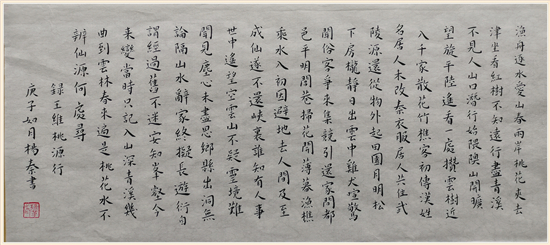 漁舟逐水愛山春兩岸桃花夾去
津坐看紅樹不知遠行盡青溪
不見人山口潛行始隈隩山開曠
望旋平陸遙看一處攢雲樹近
入千家散花竹樵客初傳漢姓
名居人未改秦衣服居人共住武
陵源還從物外起田園月明松
下房櫳靜日出雲中雞犬喧驚
聞俗客爭來集競引還家問都
邑平明閭巷掃花開薄暮漁樵
乘水入初因避地去人間及至
成仙遂不還峽裏誰知有人事
世中遙望空雲山不疑靈境難
聞見塵心未盡思鄉縣出洞無
論隔山水辭家終擬長遊衍自
謂經過舊不迷安知峯壑今
來變當時只記入山深青溪幾
曲到雲林春來遍是桃花水不
辨仙源何處尋
錄王維桃源行
庚子如月楊秦書